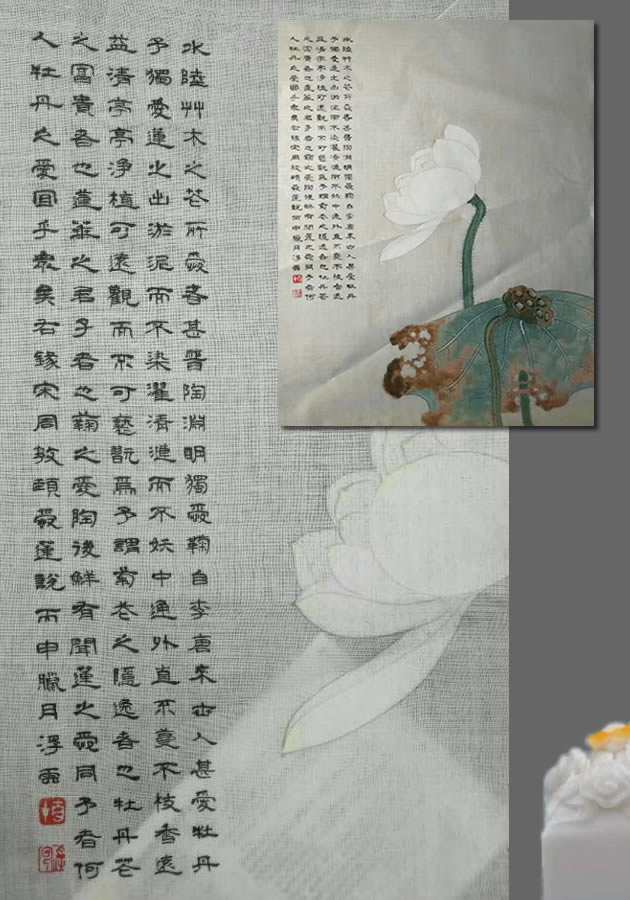 水陸艸木之花所愛者甚晉陶淵明獨愛鞠自李唐來世人甚愛牡丹
予獨愛蓮之出淤泥而不染濯清漣而不妖中通外直不蔓不枝香遠
益清亭亭淨植可遠觀而不可褻翫焉予謂菊花之隱逸者也牡丹花
之富貴者也蓮華之君子者也鞠之愛陶後鮮有聞蓮之愛同予者何
人牡丹之愛宜乎衆矣右錄宋周敦頤愛蓮說丙申臘月浮雲